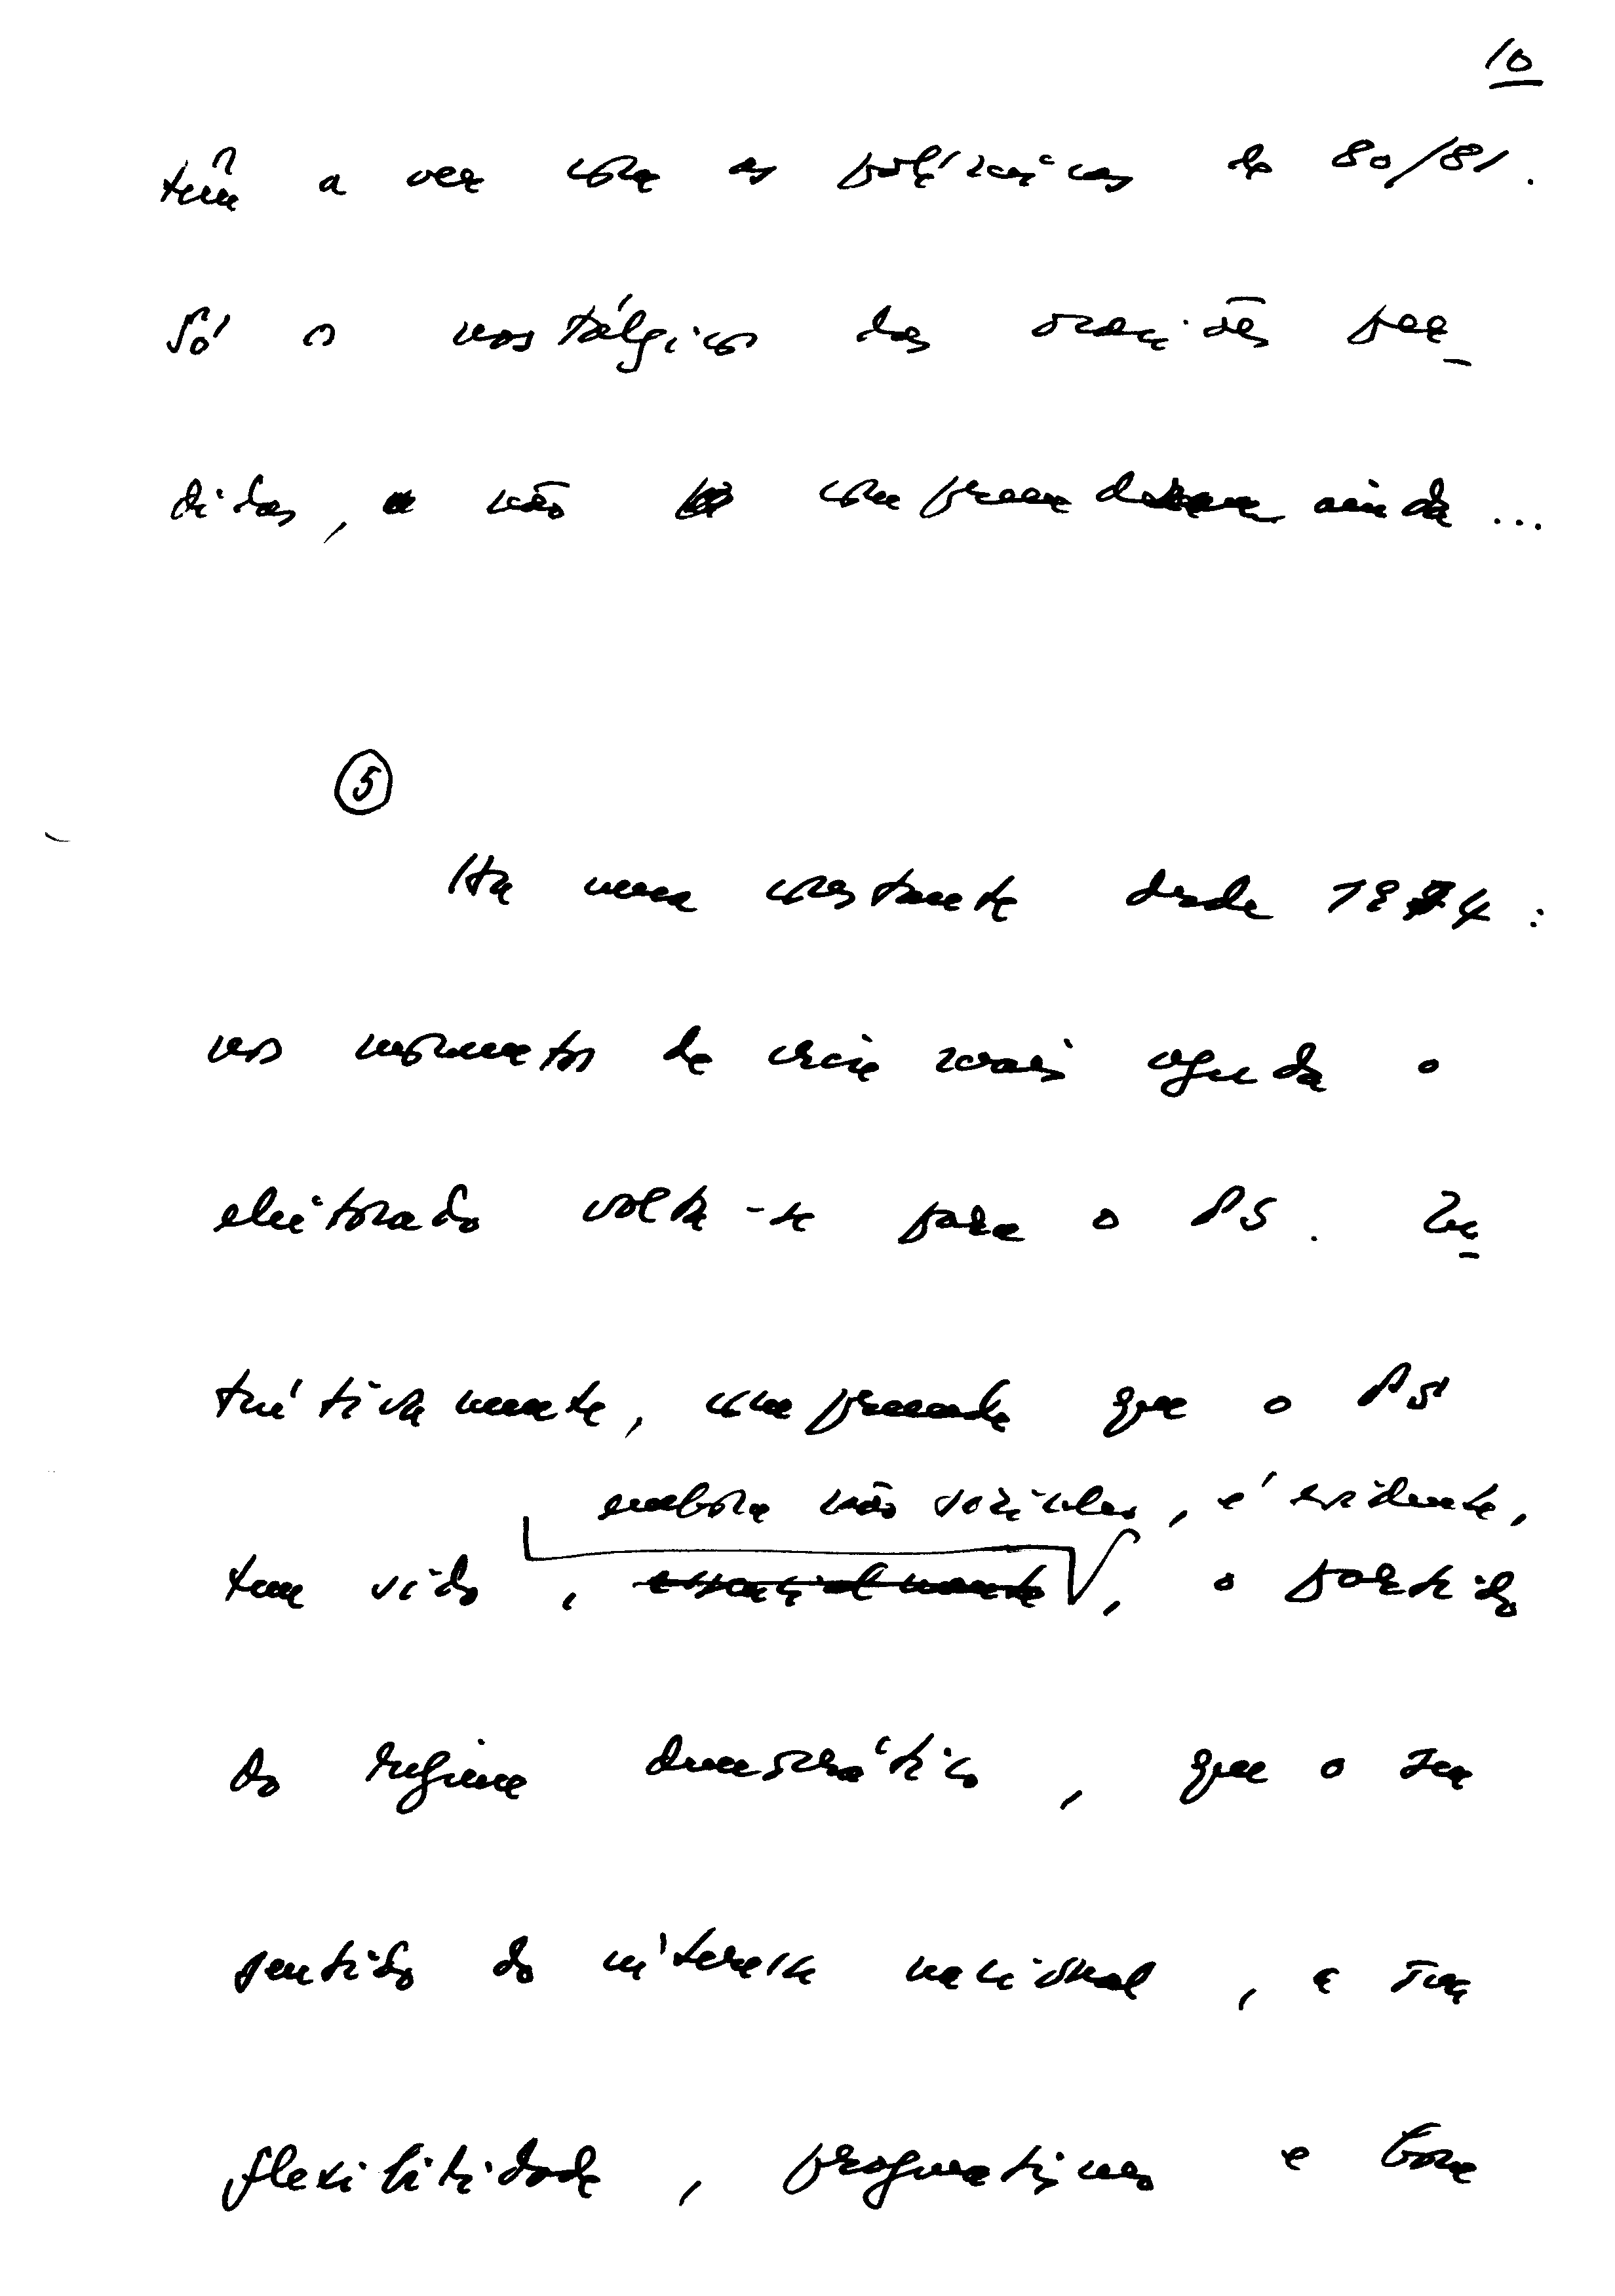 10
têm a ver com as polémicas de 80/81.
Só o nostálgico das ocasiões per_
didas, não compreendem ainda ...
5
Há uma constante desde 1974:
nos momentos de crise mais aguda o
eleitorado volta-se para o PS. In_
tuitivamente, compreende que o PS
embora não sozinho, é evidente,
tem sido, essencialmente, o partido
do regime democrático, que o seu
sentido do interesse nacional, a sua
flexibilidade, pragmatismo e bom